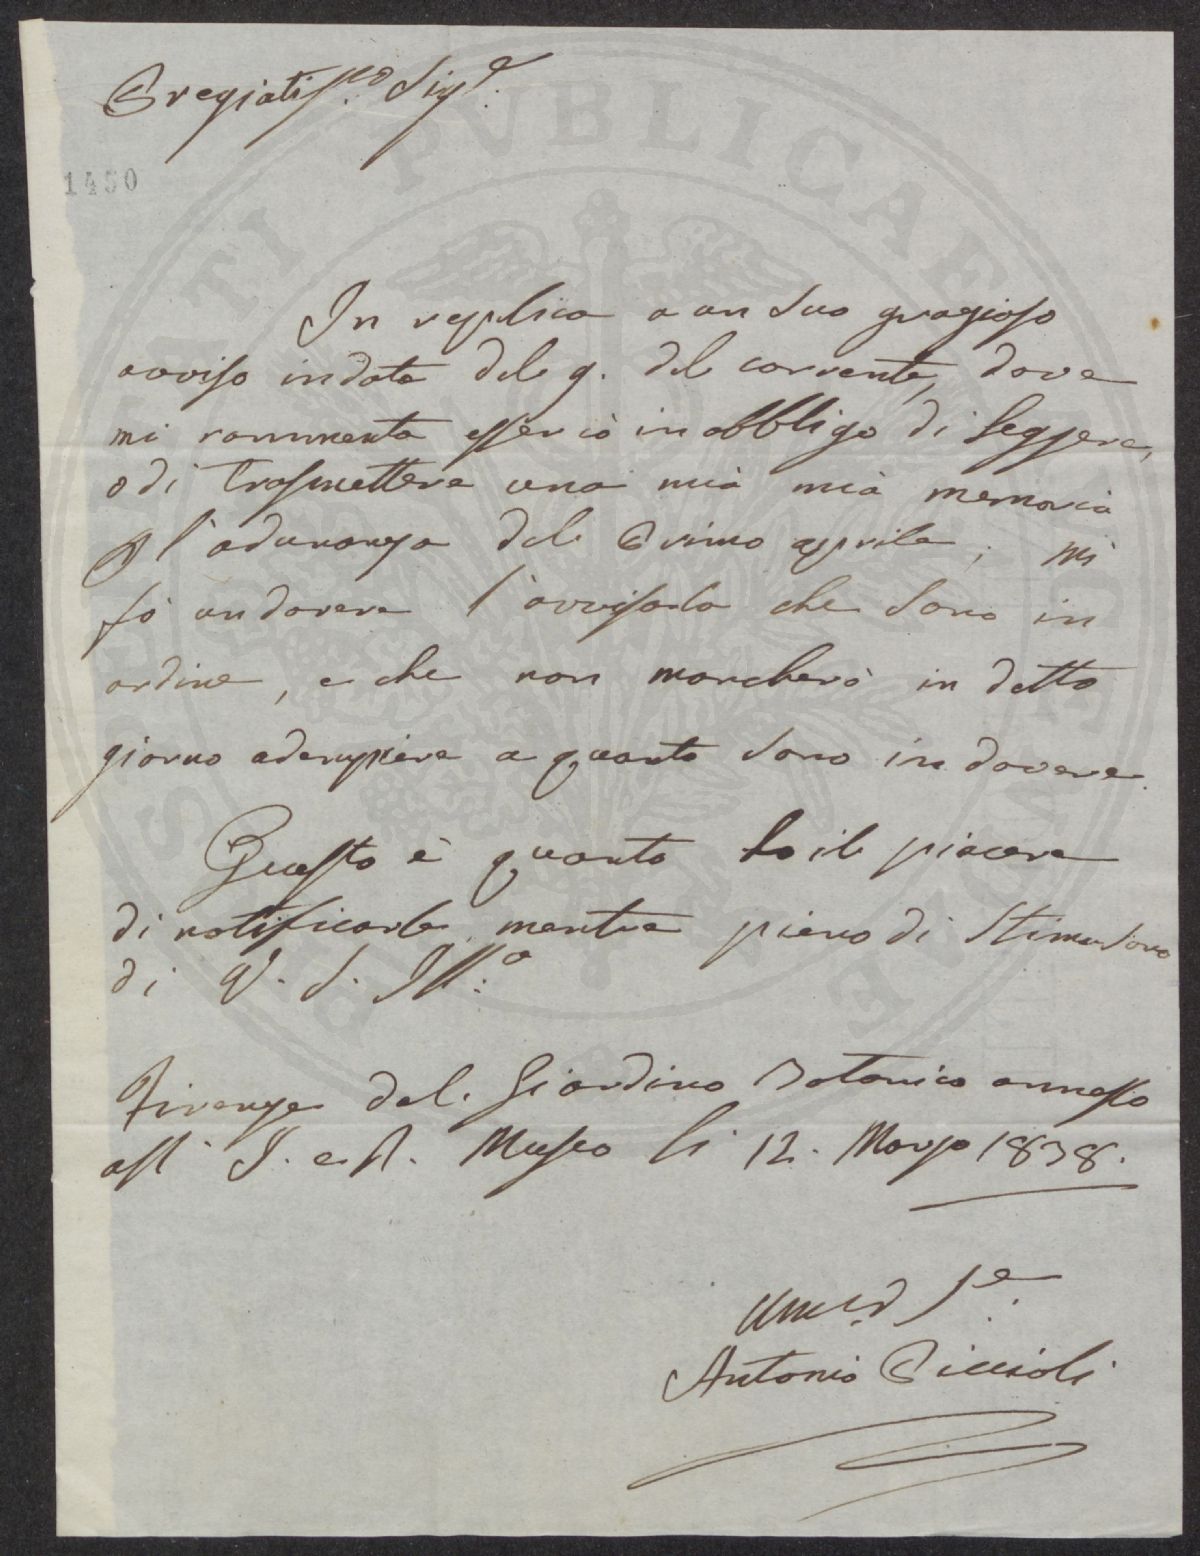 Pregiatis.mo Sig.e
1450
In replica a un suo grazioso
avviso in data del 9. del corrente, dove
mi rammenta esser iò in obbligo di leggere,
o di trasmettere una mià mià memoria
P l'adunanza del Primo aprile; mi
fò un dovere l'avvisarla che sono in
ordine, e che non mancherò in detto
giorno adempiere a quanto sono in dovere.
Questo è quanto ho il piacere
di notificarle mentre pieno di stima sono
di V. S. Ill.a
Firenze dal Giardino Botanico annesso
all' I. e R. Museo li 12. Marzo 1838.
Antonio Piccioli